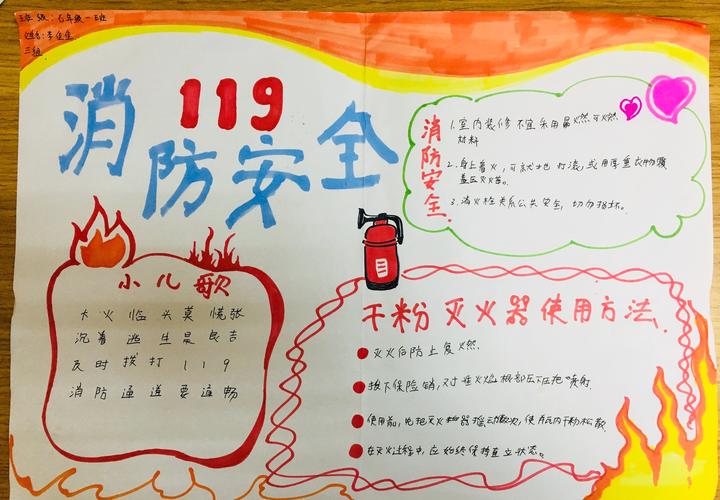 班级：七年级一班
三组
119
消防安全
消防安全
1. 室内装修不宜采用易燃可燃
材料
2. 身上着火，可就地打滚，或用厚重衣物覆
盖压灭火苗。
3. 消火栓关系公共安全，切勿损坏。
小儿歌
大火临头莫慌张
沉着逃生最良吉
及时拨打119
消防通道要通畅
干粉灭火器使用方法
灭火后防止复燃.
拔下保险销，对准火焰根部压下压把喷射.
使用前，先把灭火器摇动数次，使瓶内干粉松散.
在灭火过程中，应始终保持直立状态。